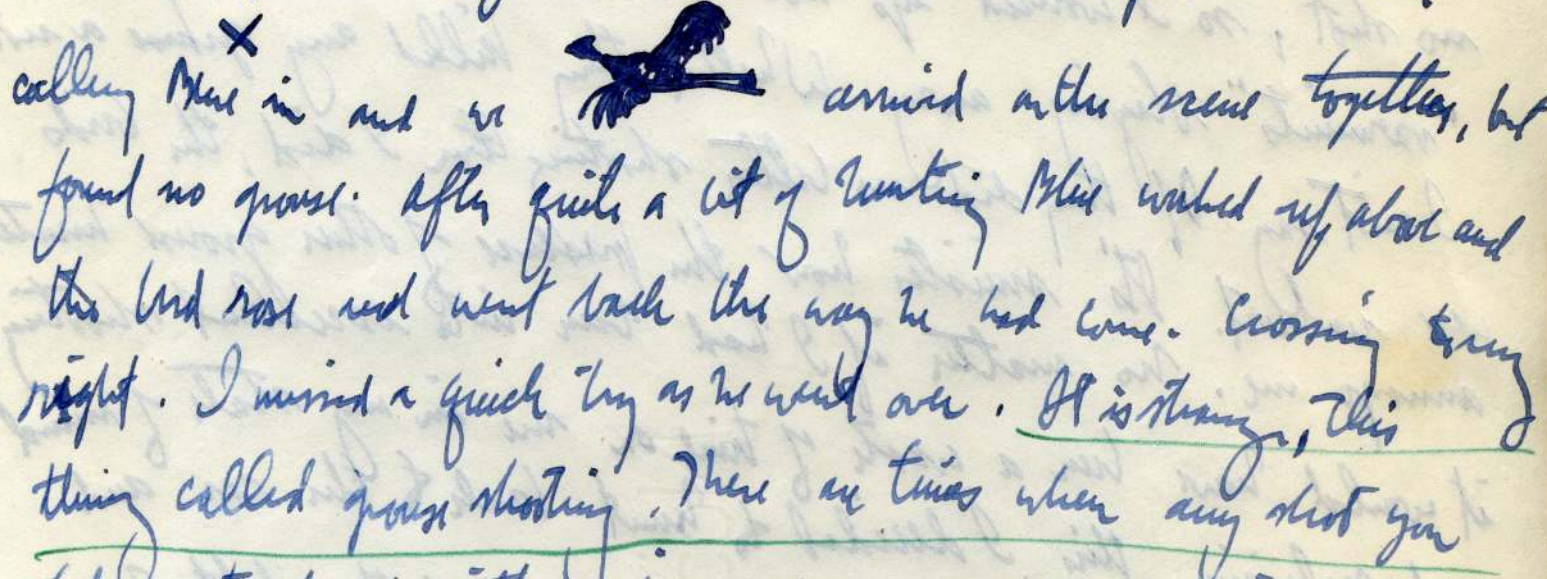 calling Blue in and we arrived on the scene together, but
found no grouse. After quite a bit of hunting Blue worked up above and
the bird rose and went back the way he had come. Crossing to my
right. I missed a quick try as he went over. It is strange, this
thing called grouse shooting. There are times when any shot you